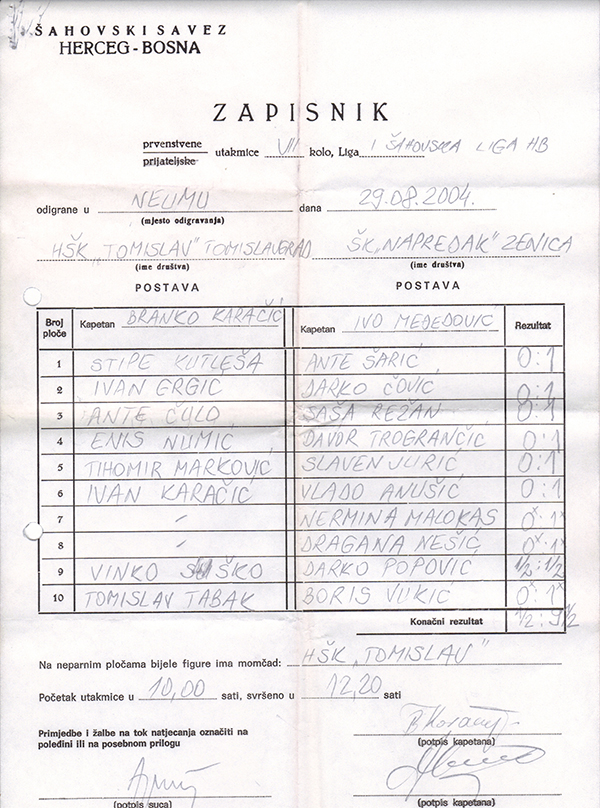 ŠAHOVSKI SAVEZ
HERCEG-BOSNA
ZAPISNIK
prvenstvene
prijateljske utakmice VII kolo, Liga I ŠAHOVSKA LIGA HB
odigrane u NEUMU dana 29.08.2004.
(mjesto odigravanja)
HŠK „TOMISLAV" TOMISLAVGRAD ŠK „NAPREDAK" ZENICA
(ime društva) (ime društva)
POSTAVA POSTAVA
Broj ploče Kapetan BRANKO KARAČIĆ Kapetan IVO MEĐEDOVIĆ Rezultat
1 STIPE KUTLEŠA ANTE ŠARIĆ 0:1
2 IVAN GRGIĆ DARKO ČOVIĆ 0:1
3 ANTE ČULO SAŠA REŽAN 0:1
4 ENIS NUMIĆ DAVOR TROGRANČIĆ 0:1
5 TIHOMIR MARKOVIĆ SLAVEN JURIĆ 0:1
6 IVAN KARAČIĆ VLADO ANUŠIĆ 0:1
7 - NERMINA MALOKAS 0x:1x
8 - DRAGANA NEŠIĆ 0x:1x
9 VINKO ŠKO DARKO POPOVIĆ 1/2:1/2
10 TOMISLAV TABAK BORIS VUKIĆ 0x:1x
Konačni rezultat 1/2:9 1/2
Na neparnim pločama bijele figure ima momčad: HŠK „TOMISLAV"
Početak utakmice u 10,00 sati, svršeno u 12,20 sati
Primjedbe i žalbe na tok natjecanja označiti na
poleđini ili na posebnom prilogu
(potpis kapetana)
(potpis suca) (potpis kapetana)